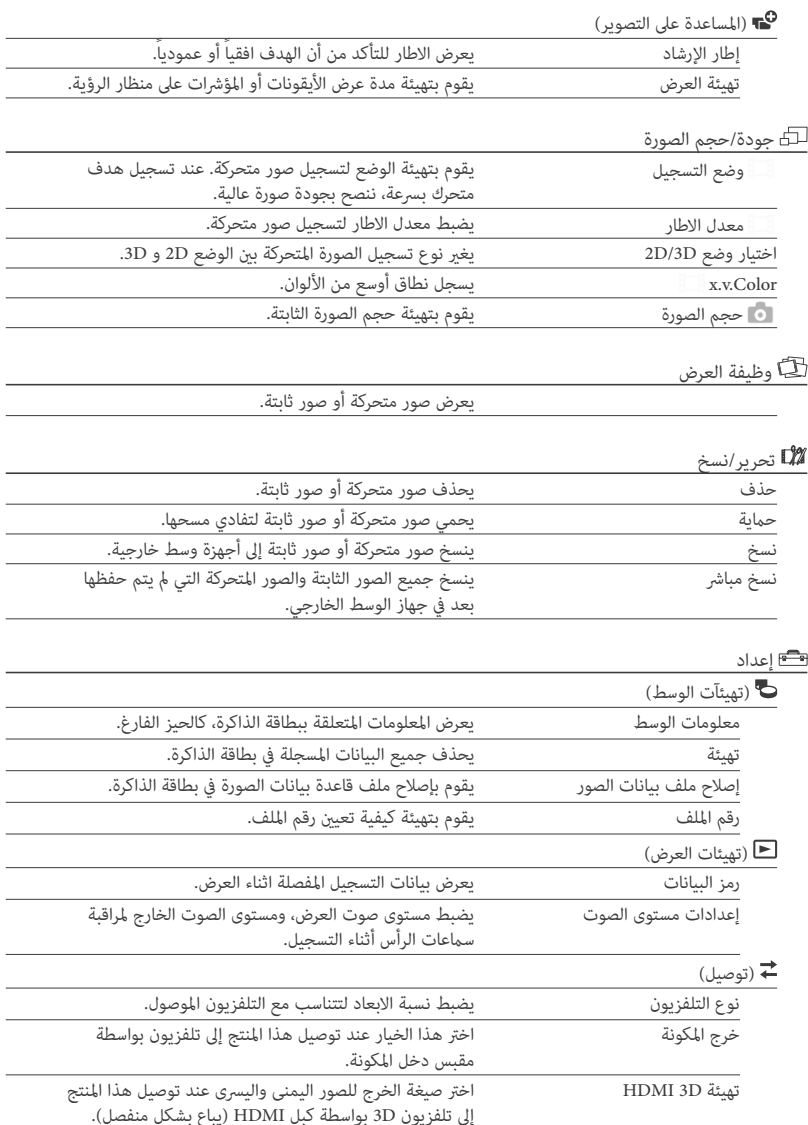 (المساعدة على التصوير)
إطار الإرشاد يعرض الاطار للتأكد من أن الهدف افقياً أو عمودياً.
تهيئة العرض يقوم بتهيئة مدة عرض الأيقونات أو المؤشرات على منظار الرؤية.
جودة/حجم الصورة
وضع التسجيل يقوم بتهيئة الوضع لتسجيل صور متحركة. عند تسجيل هدف
متحرك بسرعة، ننصح بجودة صورة عالية.
معدل الاطار يضبط معدل الاطار لتسجيل صور متحركة.
اختيار وضع 2D/3D يغير نوع تسجيل الصورة المتحركة بين الوضع 2D و 3D.
x.v.Color يسجل نطاق أوسع من الألوان.
حجم الصورة يقوم بتهيئة حجم الصورة الثابتة.
وظيفة العرض
يعرض صور متحركة أو صور ثابتة.
تحرير/نسخ
حذف يحذف صور متحركة أو صور ثابتة.
حماية يحمي صور متحركة أو صور ثابتة لتفادي مسحها.
نسخ ينسخ صور متحركة أو صور ثابتة إلى أجهزة وسط خارجية.
نسخ مباشر ينسخ جميع الصور الثابتة والصور المتحركة التي لم يتم حفظها
بعد في جهاز الوسط الخارجي.
إعداد
(تهيئآت الوسط)
معلومات الوسط يعرض المعلومات المتعلقة ببطاقة الذاكرة، كالحيز الفارغ.
تهيئة يحذف جميع البيانات المسجلة في بطاقة الذاكرة.
إصلاح ملف بيانات الصور يقوم بإصلاح ملف قاعدة بيانات الصورة في بطاقة الذاكرة.
رقم الملف يقوم بتهيئة كيفية تعيين رقم الملف.
(تهيئات العرض)
رمز البيانات يعرض بيانات التسجيل المفصلة اثناء العرض.
إعدادات مستوى الصوت يضبط مستوى صوت العرض، ومستوى الصوت الخارج لمراقبة
سماعات الرأس أثناء التسجيل.
(توصيل)
نوع التلفزيون يضبط نسبة الابعاد لتتناسب مع التلفزيون الموصول.
خرج المكونة اختر هذا الخيار عند توصيل هذا المنتج إلى تلفزيون بواسطة
مقبس دخل المكونة.
تهيئة HDMI 3D اختر صيغة الخرج للصور اليمنى واليسرى عند توصيل هذا المنتج
إلى تلفزيون 3D بواسطة كبل HDMI (يباع بشكل منفصل).